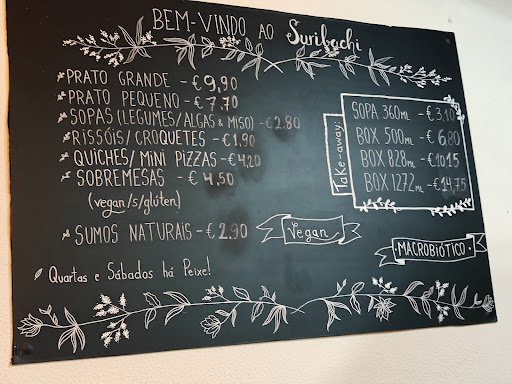 BEM-VINDO AO Suribachi
PRATO GRANDE - € 9,90
PRATO PEQUENO - € 7,70
SOPAS (LEGUMES/ALGAS & MISO) - €2.80
RISSÓIS/CROQUETES - €1,90
QUICHES/ MINI PIZZAS - €4,20
SOBREMESAS - € 4,50
(vegan/s/glúten)
SUMOS NATURAIS - € 2.90
Quartas e Sábados há Peixe!
Take-away:
SOPA 360ML - € 3.10
BOX 500ML - € 6,80
BOX 828ML - €10.15
BOX 1272ML - € 14,75
Vegan
MACROBIÓTICO.